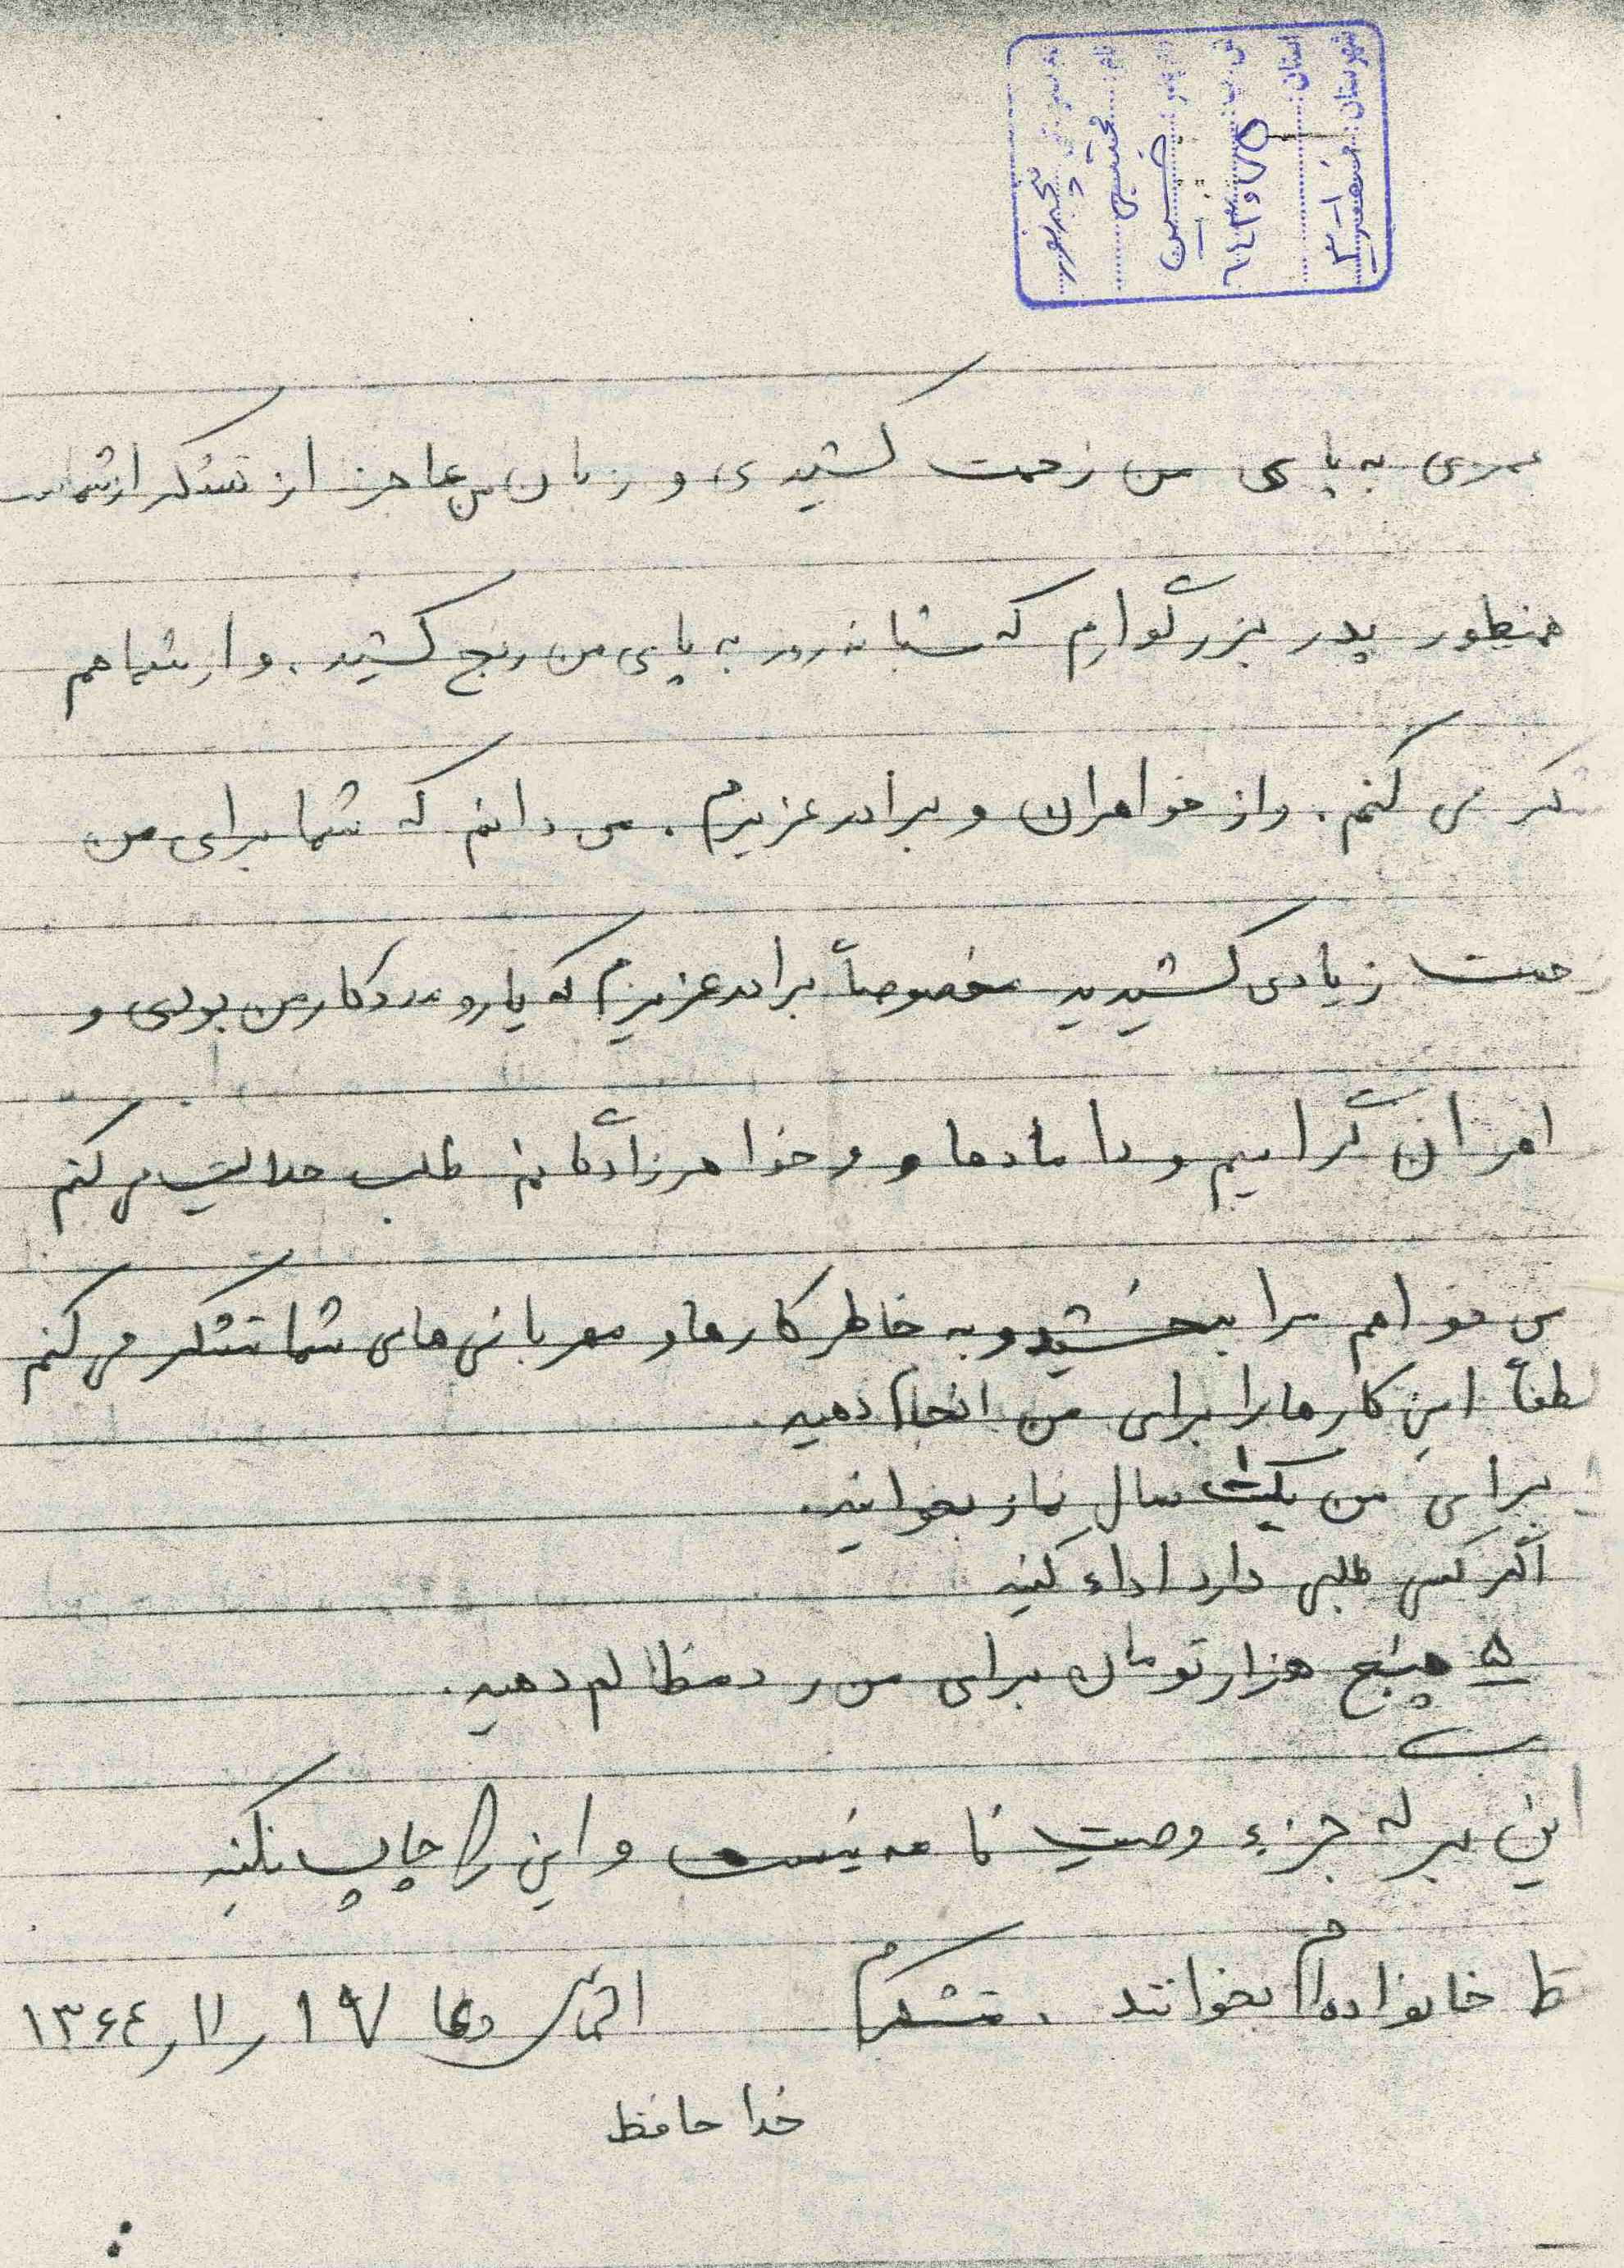 شهرستان:
استان:
نام: مجتبی
عمری به پای من زحمت کشیدی و زبان من عاجز از تشکر از شماست
همنطور پدر بزرگوارم که شبانه روز به پای من رنج کشید. و از شما هم
شکر می کنم. و از خواهران و برادر عزیزم. می دانم که شما برای من
زحمت زیادی کشیدید مخصوصاً برادر عزیزم که یار و مددکار من بودی و
اهران گرامیم و دامادها و و خواهرزادگانم طلب حلالیت می کنم
می خواهم مرا ببخشید و به خاطر کارها و مهربانی های شما تشکر می کنم
لطفاً این کارها را برای من انجام دهید.
برای من یک سال نماز بخوانید.
اگر کسی طلبی دارد اداء کنید
۵ پنج هزار تومان برای من رد مظالم دهید.
این برگه جزء وصیت نامه نیست و این را چاپ نکنید
قط خانواده ام بخوانند. متشکرم التماس دعا ۱۷ ر ۱۱ ر ۱۳۶۴
خدا حافظ